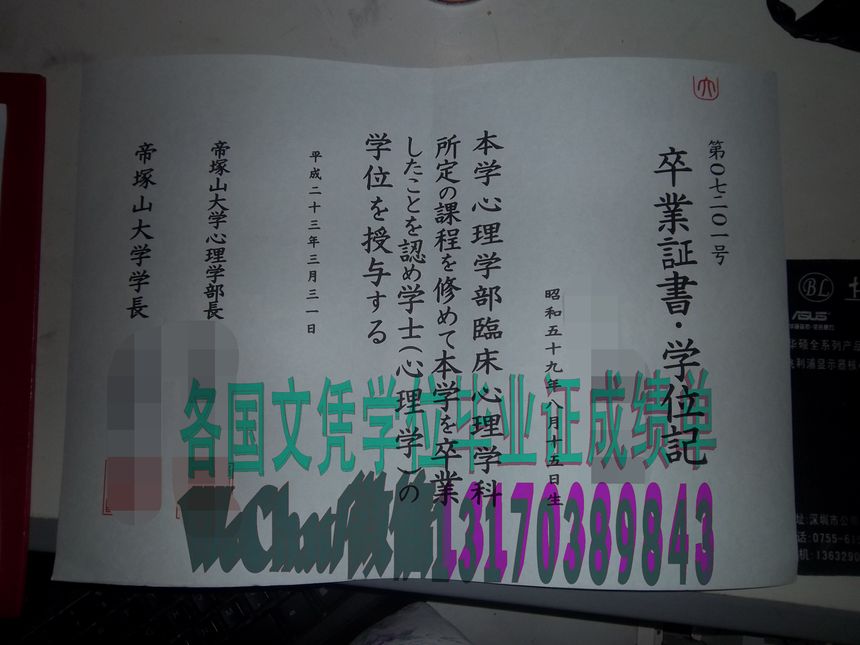 第〇七二〇一号
卒業証書・学位記
昭和五十九年八月十五日生
本学心理学部臨床心理学科
所定の課程を修めて本学を卒業
したことを認め学士(心理学)の
学位を授与する
平成二十三年三月三一日
帝塚山大学心理学部長
帝塚山大学学長
各国文凭学位毕业证成绩单
WeChat/微信13170389843
BL
ASUS
华硕全系列产品
址:深圳市公
话:0755-6
机:1363290